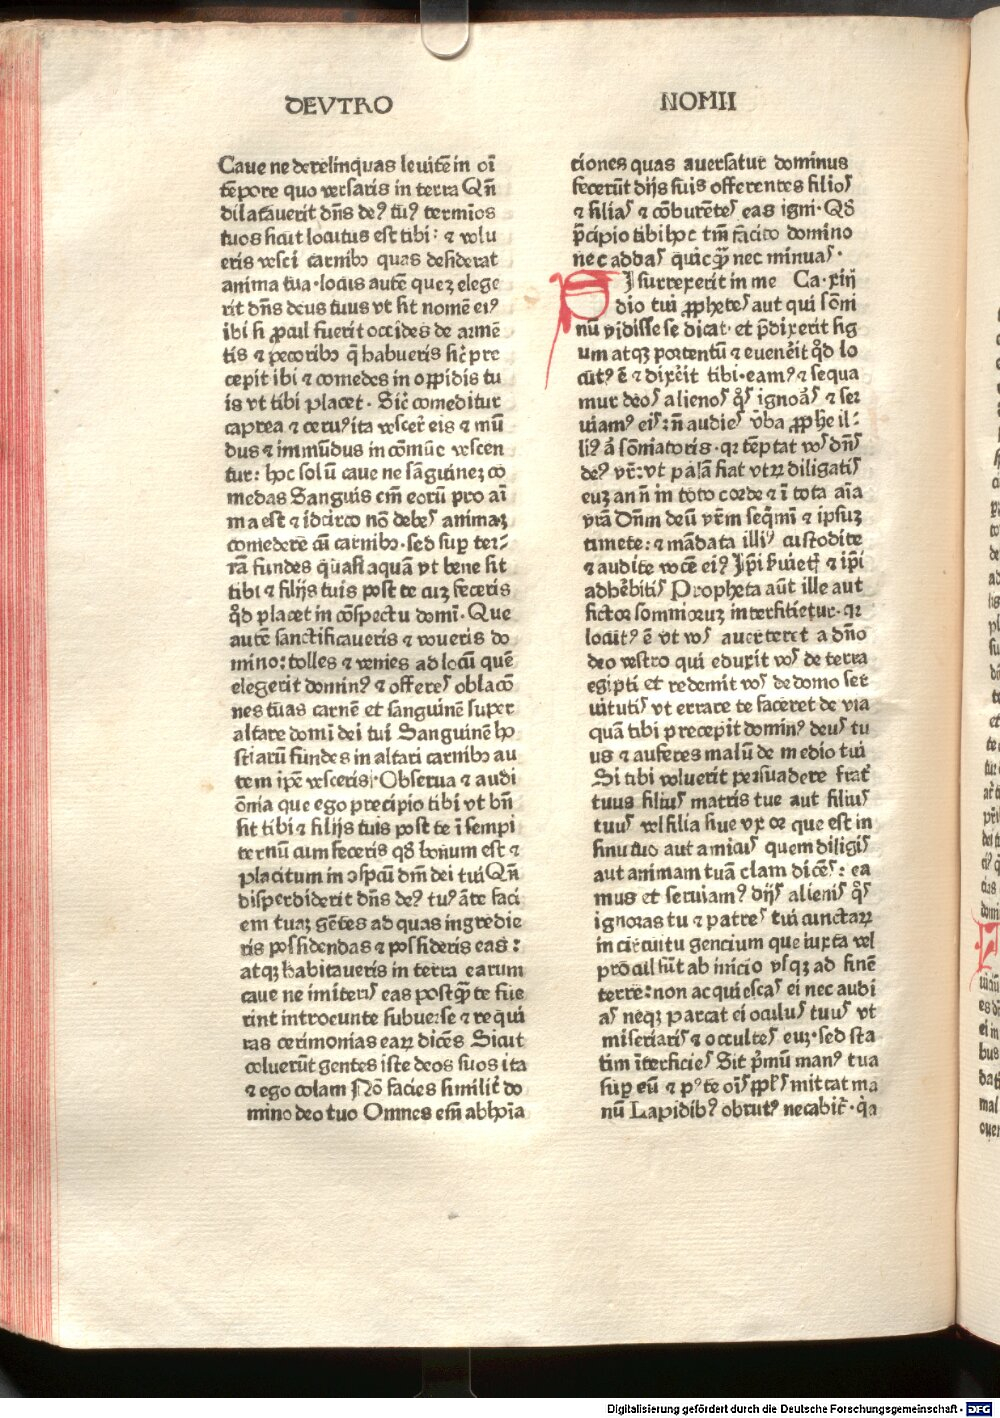 DEVTRO
NOMII
Caue ne derelinquas leuitē in oī
tēpore quo versaris in terra Qn̄
dilatauerit dn̄s deꝰ tuꝰ termīos
tuos sicut locutus est tibi: ⁊ volu
eris vesci carnibꝫ quas desiderat
anima tua·locus autē quez elege
rit dn̄s deus tuus vt sit nomē eiꝰ
ibi si ꝓcul fuerit occides de armē
tis ⁊ pecoribꝫ q̄ habueris sic̄ pre
cepit tibi ⁊ comedes in oppidis tu
is vt tibi placet· Sic̄ comeditur
caprea ⁊ ceruꝰita vescer̄ eis ⁊ mū
dus ⁊ immūdus in cōmūe vescen
tur: hoc solū caue ne sāguinez co
medas Sanguis em̄ eorū pro aī
ma est ⁊ idcirco nō debes animaz
comedere cū carnibꝫ·sed suꝑ ter⸗
rā fundes quasi aquā vt bene sit
tibi ⁊ filijs tuis post te cuꝫ feceris
qd̄ placet in cōspectu domī· Que
autē sanctificaueris ⁊ voueris do
mino: tolles ⁊ venies ad locū quē
elegerit dominꝰ ⁊ offeres oblacō
nes tuas carnē et sanguinē super
altare domī dei tui Sanguinē ho
stiarū fundes in altari carnibꝫ au
tem ipē vesceris· Obserua ⁊ audi
ōnia que ego precipio tibi vt bn̄
sit tibi ⁊ filijs tuis post te ī sempi
ternū cum feceris qd̄ bonum est ⁊
placitum in ↄspc̄u dn̄i dei tui Qn̄
disperdiderit dn̄s deꝰ tuꝰ āte faci
em tuaꝫ gētes ad quas ingredie
ris possidendas ⁊ possideris eas:
atqꝫ habitaueris in terra earum
caue ne imiteris eas postqͣꝫ te fue
rint introeunte subuerse ⁊ requi
ras cerimonias eaꝝ dicēs Sicut
coluerūt gentes iste deos suos ita
⁊ ego colam Nō facies similit̄ do
mino deo tuo Omnes em̄ abhoīa
ciones quas auersatur dominus
fecerūt dijs suis offerentes filios
⁊ filias ⁊ cōburētes eas igni· Qd̄
p̄cipio tibi hoc tm̄ facito domino
nec addas quicqͣꝫ nec minuas·
SI surrexerit in me Ca·xiij
dio tui ꝓphetes aut qui sōni
nū vidisse se dicat· et p̄dixerit sig
um atqꝫ portentū ⁊ euenēit qd̄ lo
cutꝰ ē ⁊ dixēit tibi·eamꝰ ⁊ sequa
mur deos alienos qͦs ignoās ⁊ ser
uiamꝰ eis: n̄ audies v̄ba ꝓphe il⸗
liꝰ aū sōniatoris·qꝛ tēptat vos dn̄s
deꝰ vr̄: vt palā fiat vtꝝ diligatis
euꝫ an n̄ in toto corde ⁊ ī tota aīa
vr̄a Dn̄m deū vr̄m seqͥmī ⁊ ipsuꝫ
timete: ⁊ mādata illiꝰ custodite
⁊ audite vocē eiꝰ Ip̄i ⁊ ip̄i
adhēbitis Propheta aūt ille aut
fictor somnioruꝫ interficietur·qꝛ
locutꝰ ē vt vos auerteret a dn̄o
deo vestro qui eduxit vos de terra
egipti et redemit vos de domo ser
uitutis vt errare te faceret de via
quā tibi precepit dominꝰ deus tu
us ⁊ auferes malū de medio tui
Si tibi voluerit persuadere frat̄
tuus filius matris tue aut filius
tuus vel filia siue vxor que est in
sinu tuo aut amicus quem diligis
aut animam tuā clam dicēs: ea
mus et seruiamꝰ dijs alienis qͦs
ignoras tu ⁊ patres tui cunctaꝝ
in circuitu gencium que iuxta vel
procul sūt ab inicio vsqꝫ ad finē
terre: non acquiescas ei nec audi
as neqꝫ parcat ei oculus tuus vt
miseriaris ⁊ occultes euꝫ·sed sta
tim īterficies Sit p̄mū manꝰ tua
suꝑ eū ⁊ pꝰ te oīs ppl̄s mittat ma
nū Lapidibꝰ obrutꝰ necabit̄·qͥa
Digitalisierung gefördert durch die Deutsche Forschungsgemeinschaft - DFG